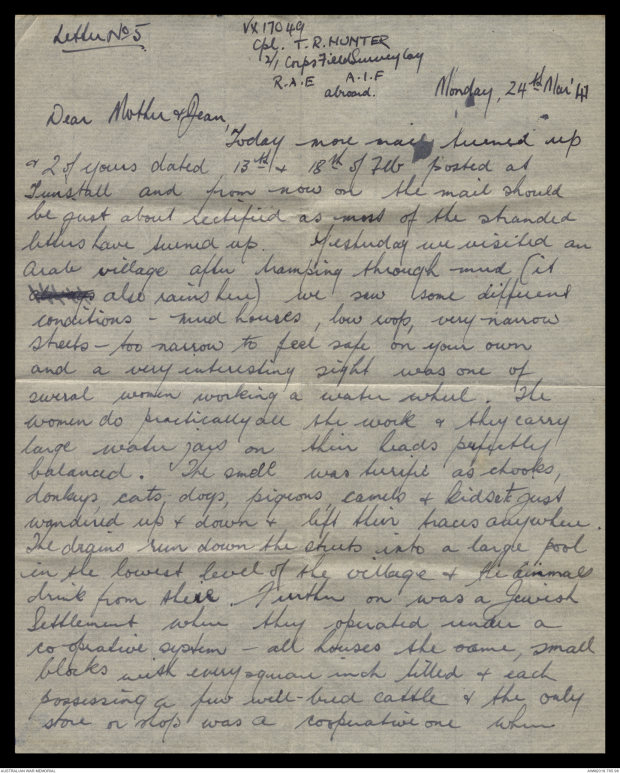 Letter No 5.
VX17049
Cpl. T. R. HUNTER
2/1 Corps Field Survey Coy
R.A.E A.I.F
abroad.
Monday, 24th Mar '41
Dear Mother & Jean,
Today more mail turned up
& 2 of yours dated 13th & 18th of Feb posted at
Tunstall and from now on the mail should
be just about rectified as most of the stranded
letters have turned up. Yesterday we visited an
Arab village after tramping through mud (it
also rains here) we saw some different
conditions - mud houses, low roof, very narrow
streets - too narrow to feel safe on your own
and a very interesting sight was one of
several women working a water wheel. The
women do practically all the work & they carry
large water jars on their heads perfectly
balanced. The smell was terrific as chooks,
donkeys, cats, dogs, pigeons, camels & kids just
wandered up & down & left their traces anywhere.
The drains run down the streets into a large pool
in the lowest level of the village & the animals
drink from there. Further on was a Jewish
Settlement where they operated under a
co-operative system - all houses the same, small
blocks with every square inch tilled & each
possessing a few well-bred cattle & the only
store or shop was a cooperative one where
AUSTRALIAN WAR MEMORIAL